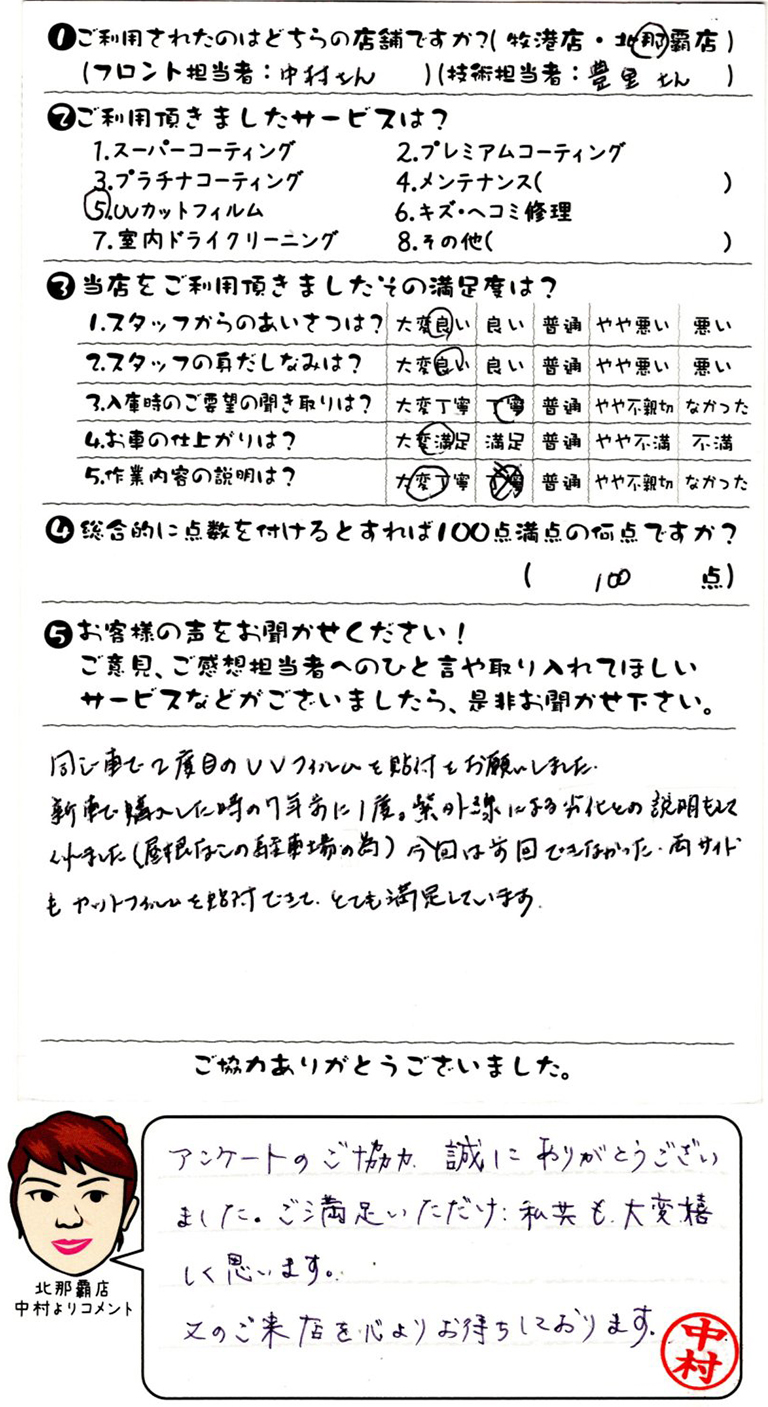 ❶ご利用されたのはどちらの店舗ですか?(牧港店・北那覇店)
(フロント担当者:中村さん)(技術担当者:豊里さん)
❷ご利用頂きましたサービスは?
1.スーパーコーティング 2.プレミアムコーティング
3.プラチナコーティング 4.メンテナンス( )
5.UVカットフィルム 6.キズ・ヘコミ修理
7.室内ドライクリーニング 8.その他( )
❸当店をご利用頂きましたその満足度は?
1.スタッフからのあいさつは? 大変良い 良い 普通 やや悪い 悪い
2.スタッフの身だしなみは? 大変良い 良い 普通 やや悪い 悪い
3.入庫時のご要望の聞き取りは? 大変丁寧 丁寧 普通 やや不親切 なかった
4.お車の仕上がりは? 大変満足 満足 普通 やや不満 不満
5.作業内容の説明は? 大変丁寧 丁寧 普通 やや不親切 なかった
❹総合的に点数を付けるとすれば100点満点の何点ですか?
( 100 点)
❺お客様の声をお聞かせください!
ご意見、ご感想担当者へのひと言や取り入れてほしい
サービスなどがございましたら、是非お聞かせ下さい。
同じ車で2度目のUVフィルムを貼付をお願いしました.
新車で購入した時の7年前に1度。紫外線による劣化との説明もして
くれました(屋根なしの駐車場の為)今回は前回できなかった.両サイド
もカットフィルムを貼付できて.とても満足しています.
ご協力ありがとうございました。
アンケートのご協力 誠にありがとうござい
ました。ご満足いただけ:私共も、大変嬉
しく思います。
又のご来店を心よりお待ちしております.
中村
北那覇店
中村よりコメント